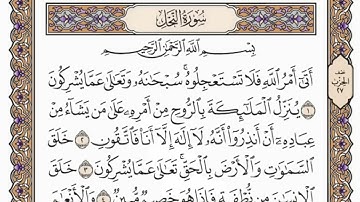 سُورَةُ النَّحْلِ
بِسْمِ اللَّهِ الرَّحْمَٰنِ الرَّحِيمِ
أَتَىٰ أَمْرُ اللَّهِ فَلَا تَسْتَعْجِلُوهُ ۚ سُبْحَانَهُ وَتَعَالَىٰ عَمَّا يُشْرِكُونَ
١ يُنَزِّلُ الْمَلَائِكَةَ بِالرُّوحِ مِنْ أَمْرِهِ عَلَىٰ مَن يَشَاءُ مِنْ
عِبَادِهِ أَنْ أَنذِرُوا أَنَّهُ لَا إِلَٰهَ إِلَّا أَنَا فَاتَّقُونِ ٢ خَلَقَ
السَّمَاوَاتِ وَالْأَرْضَ بِالْحَقِّ ۚ تَعَالَىٰ عَمَّا يُشْرِكُونَ ٣ خَلَقَ
الْإِنسَانَ مِن نُّطْفَةٍ فَإِذَا هُوَ خَصِيمٌ مُّبِينٌ ٤ وَالْأَنْعَامَ
نصف
الحزب
٢٧